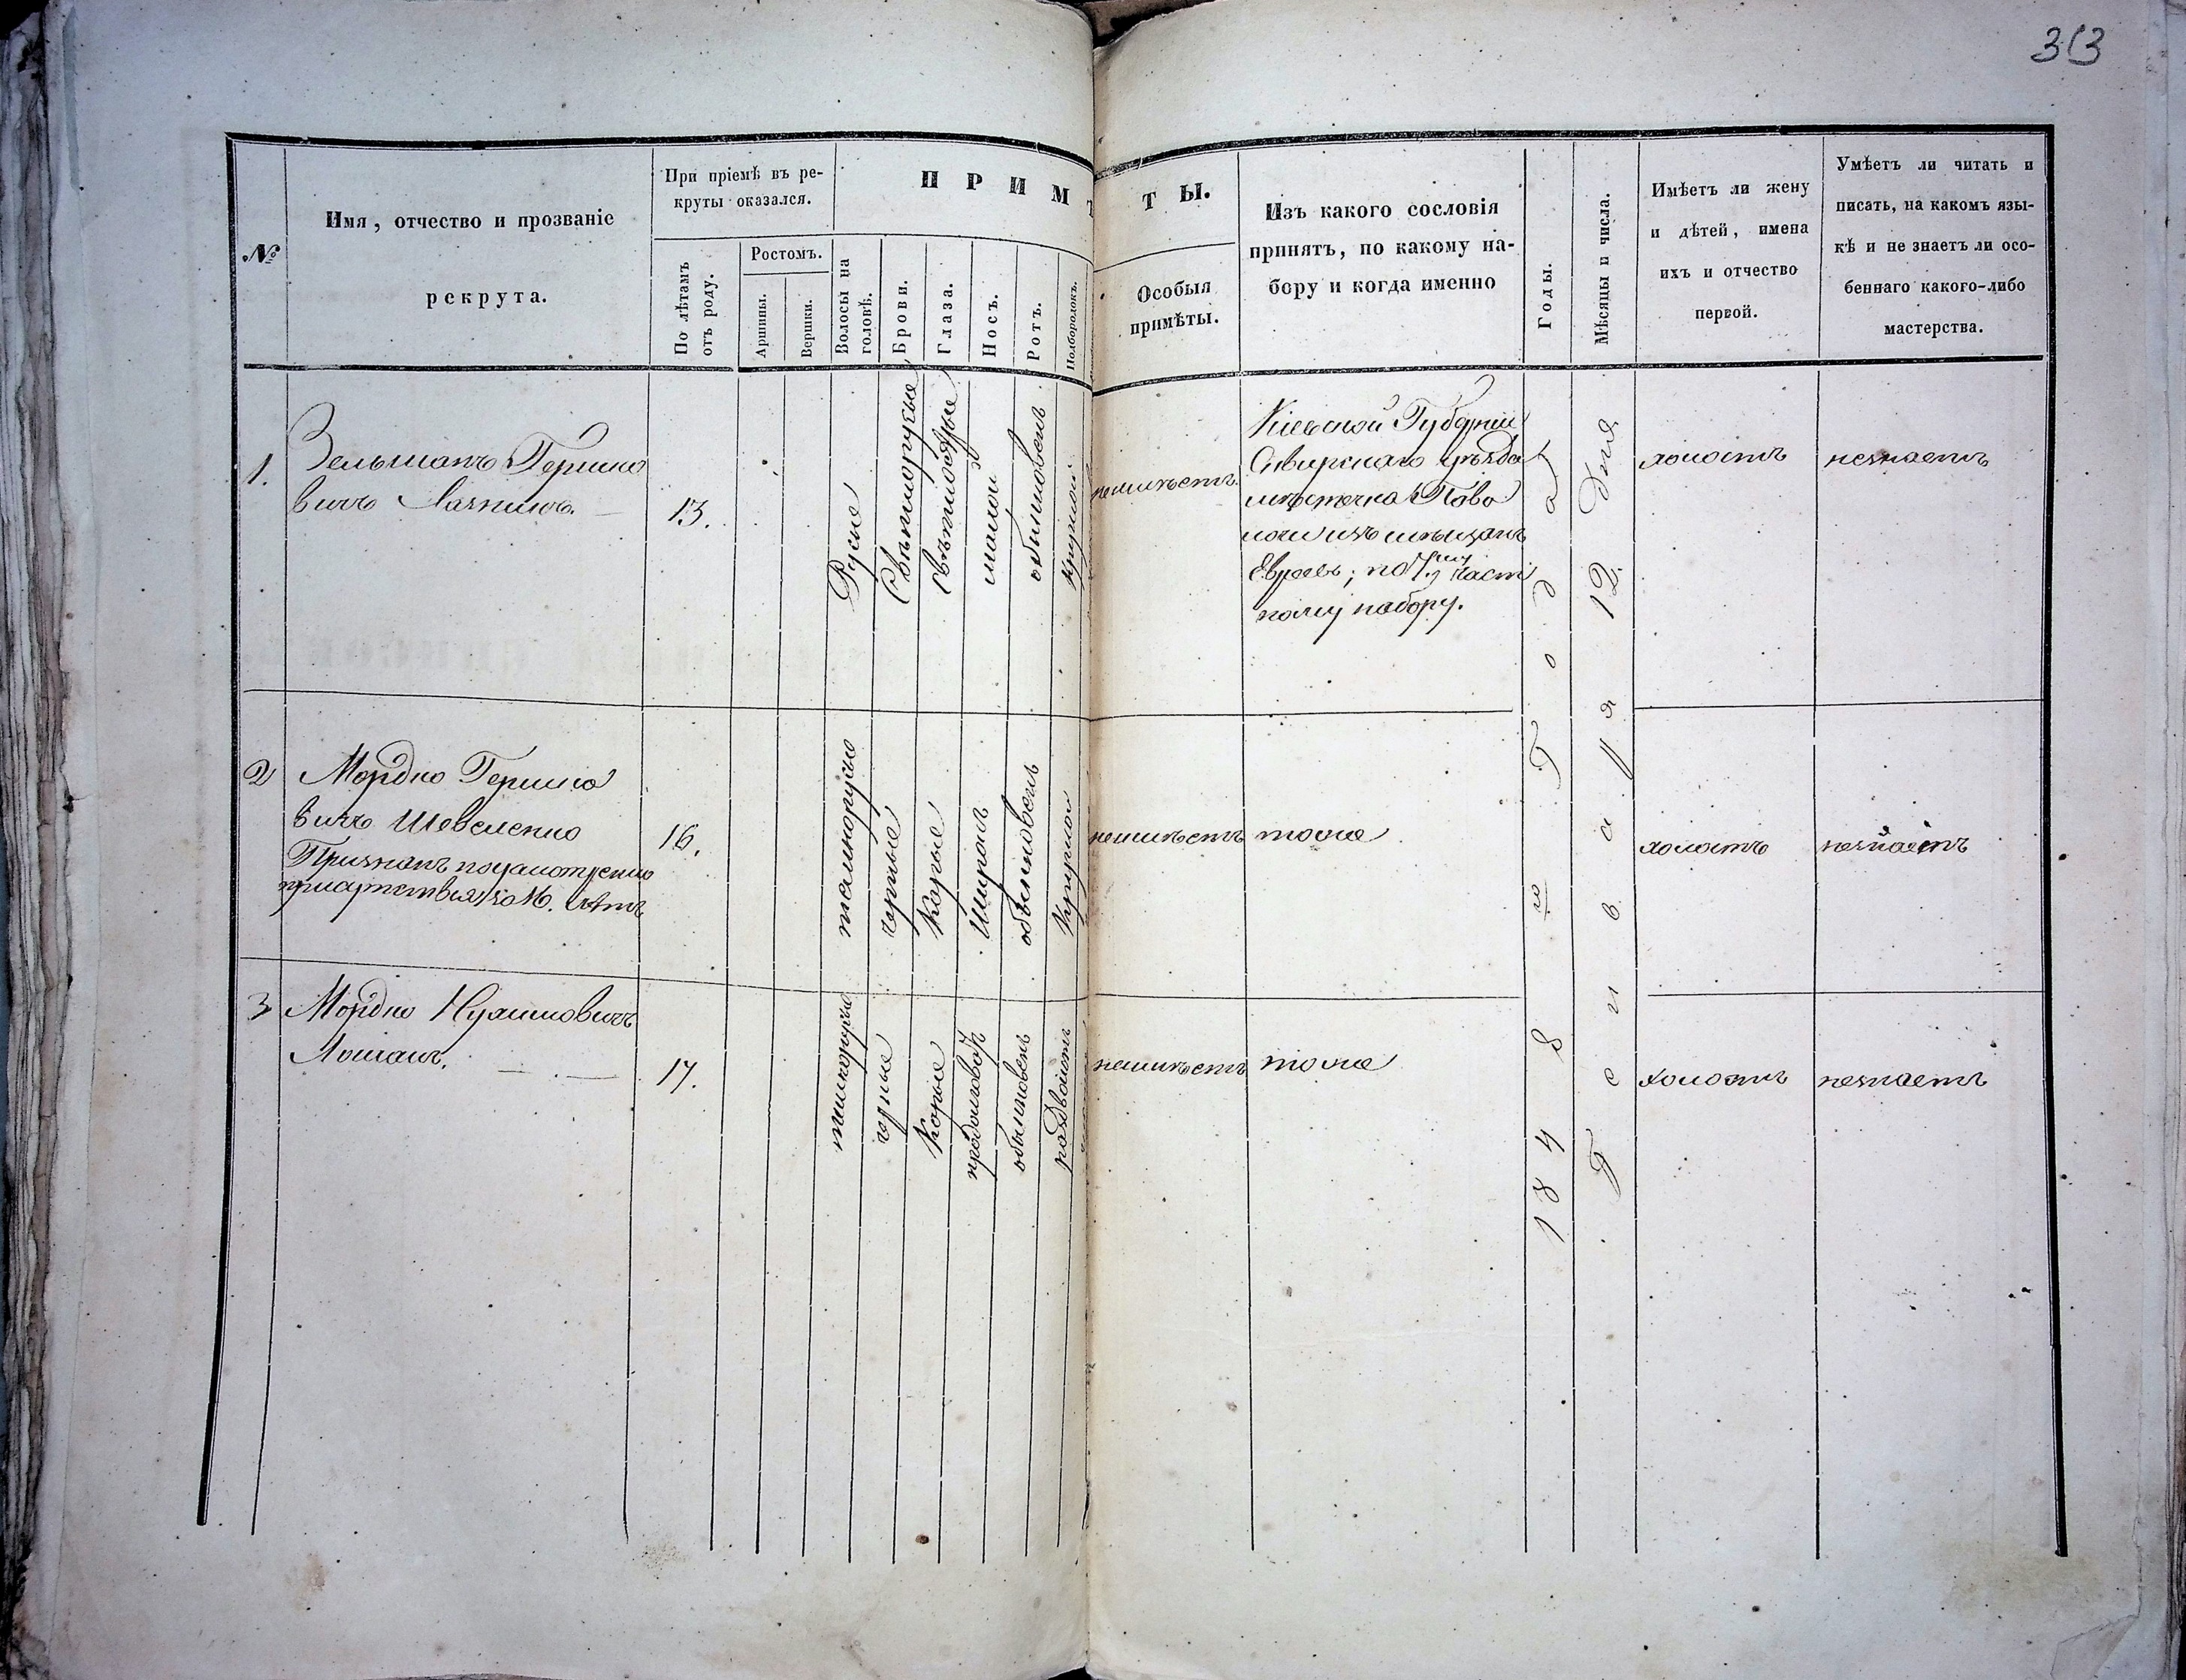 313
№
Имя, отчество и прозваніе
рекрута.
При пріемѣ въ ре-
круты оказался.
По лѣтамъ
отъ роду.
Ростомъ.
Аршины.
Вершки.
ПРИМѢ
Волосы на
головѣ.
Брови.
Глаза.
Носъ.
Ротъ.
Подбородокъ.
ТЫ.
Особыя
примѣты.
Изъ какого сословія
принятъ, по какому на-
бору и когда именно
Годы.
Мѣсяцы и числа.
Имѣетъ ли жену
и дѣтей, имена
ихъ и отчество
первой.
Умѣетъ ли читать и
писать, на какомъ язы-
кѣ и не знаетъ ли осо-
беннаго какого-либо
мастерства.
1.
Зельманъ Гершко
вичъ
13.
Русые
Свѣтлорусые
свѣтлосѣрые
малой
обыкновенъ
круглой
неимѣетъ
Кіевской Губерніи
Сквирскаго уѣзда
мѣстечка Паво
лочи изъ мѣщанъ
Евреевъ; по 7му част
ному набору.
1848го Года
Генваря 12. дня
холостъ
незнаетъ
2
Мордко Гершко
вичъ Шевеленко
Признанъ поусмотренію
присутствія 16. лѣтъ
16.
темнорусые
черные
Карые
Широкъ
обыкновенъ
Круглой
неимѣетъ
тоже
холостъ
незнаетъ
3
Мордко Нухимовичъ
Лошакъ.
17.
темнорусые
черные
Карые
продолговатъ
обыкновенъ
раздвоистъ
неимѣетъ
тоже
холостъ
незнаетъ